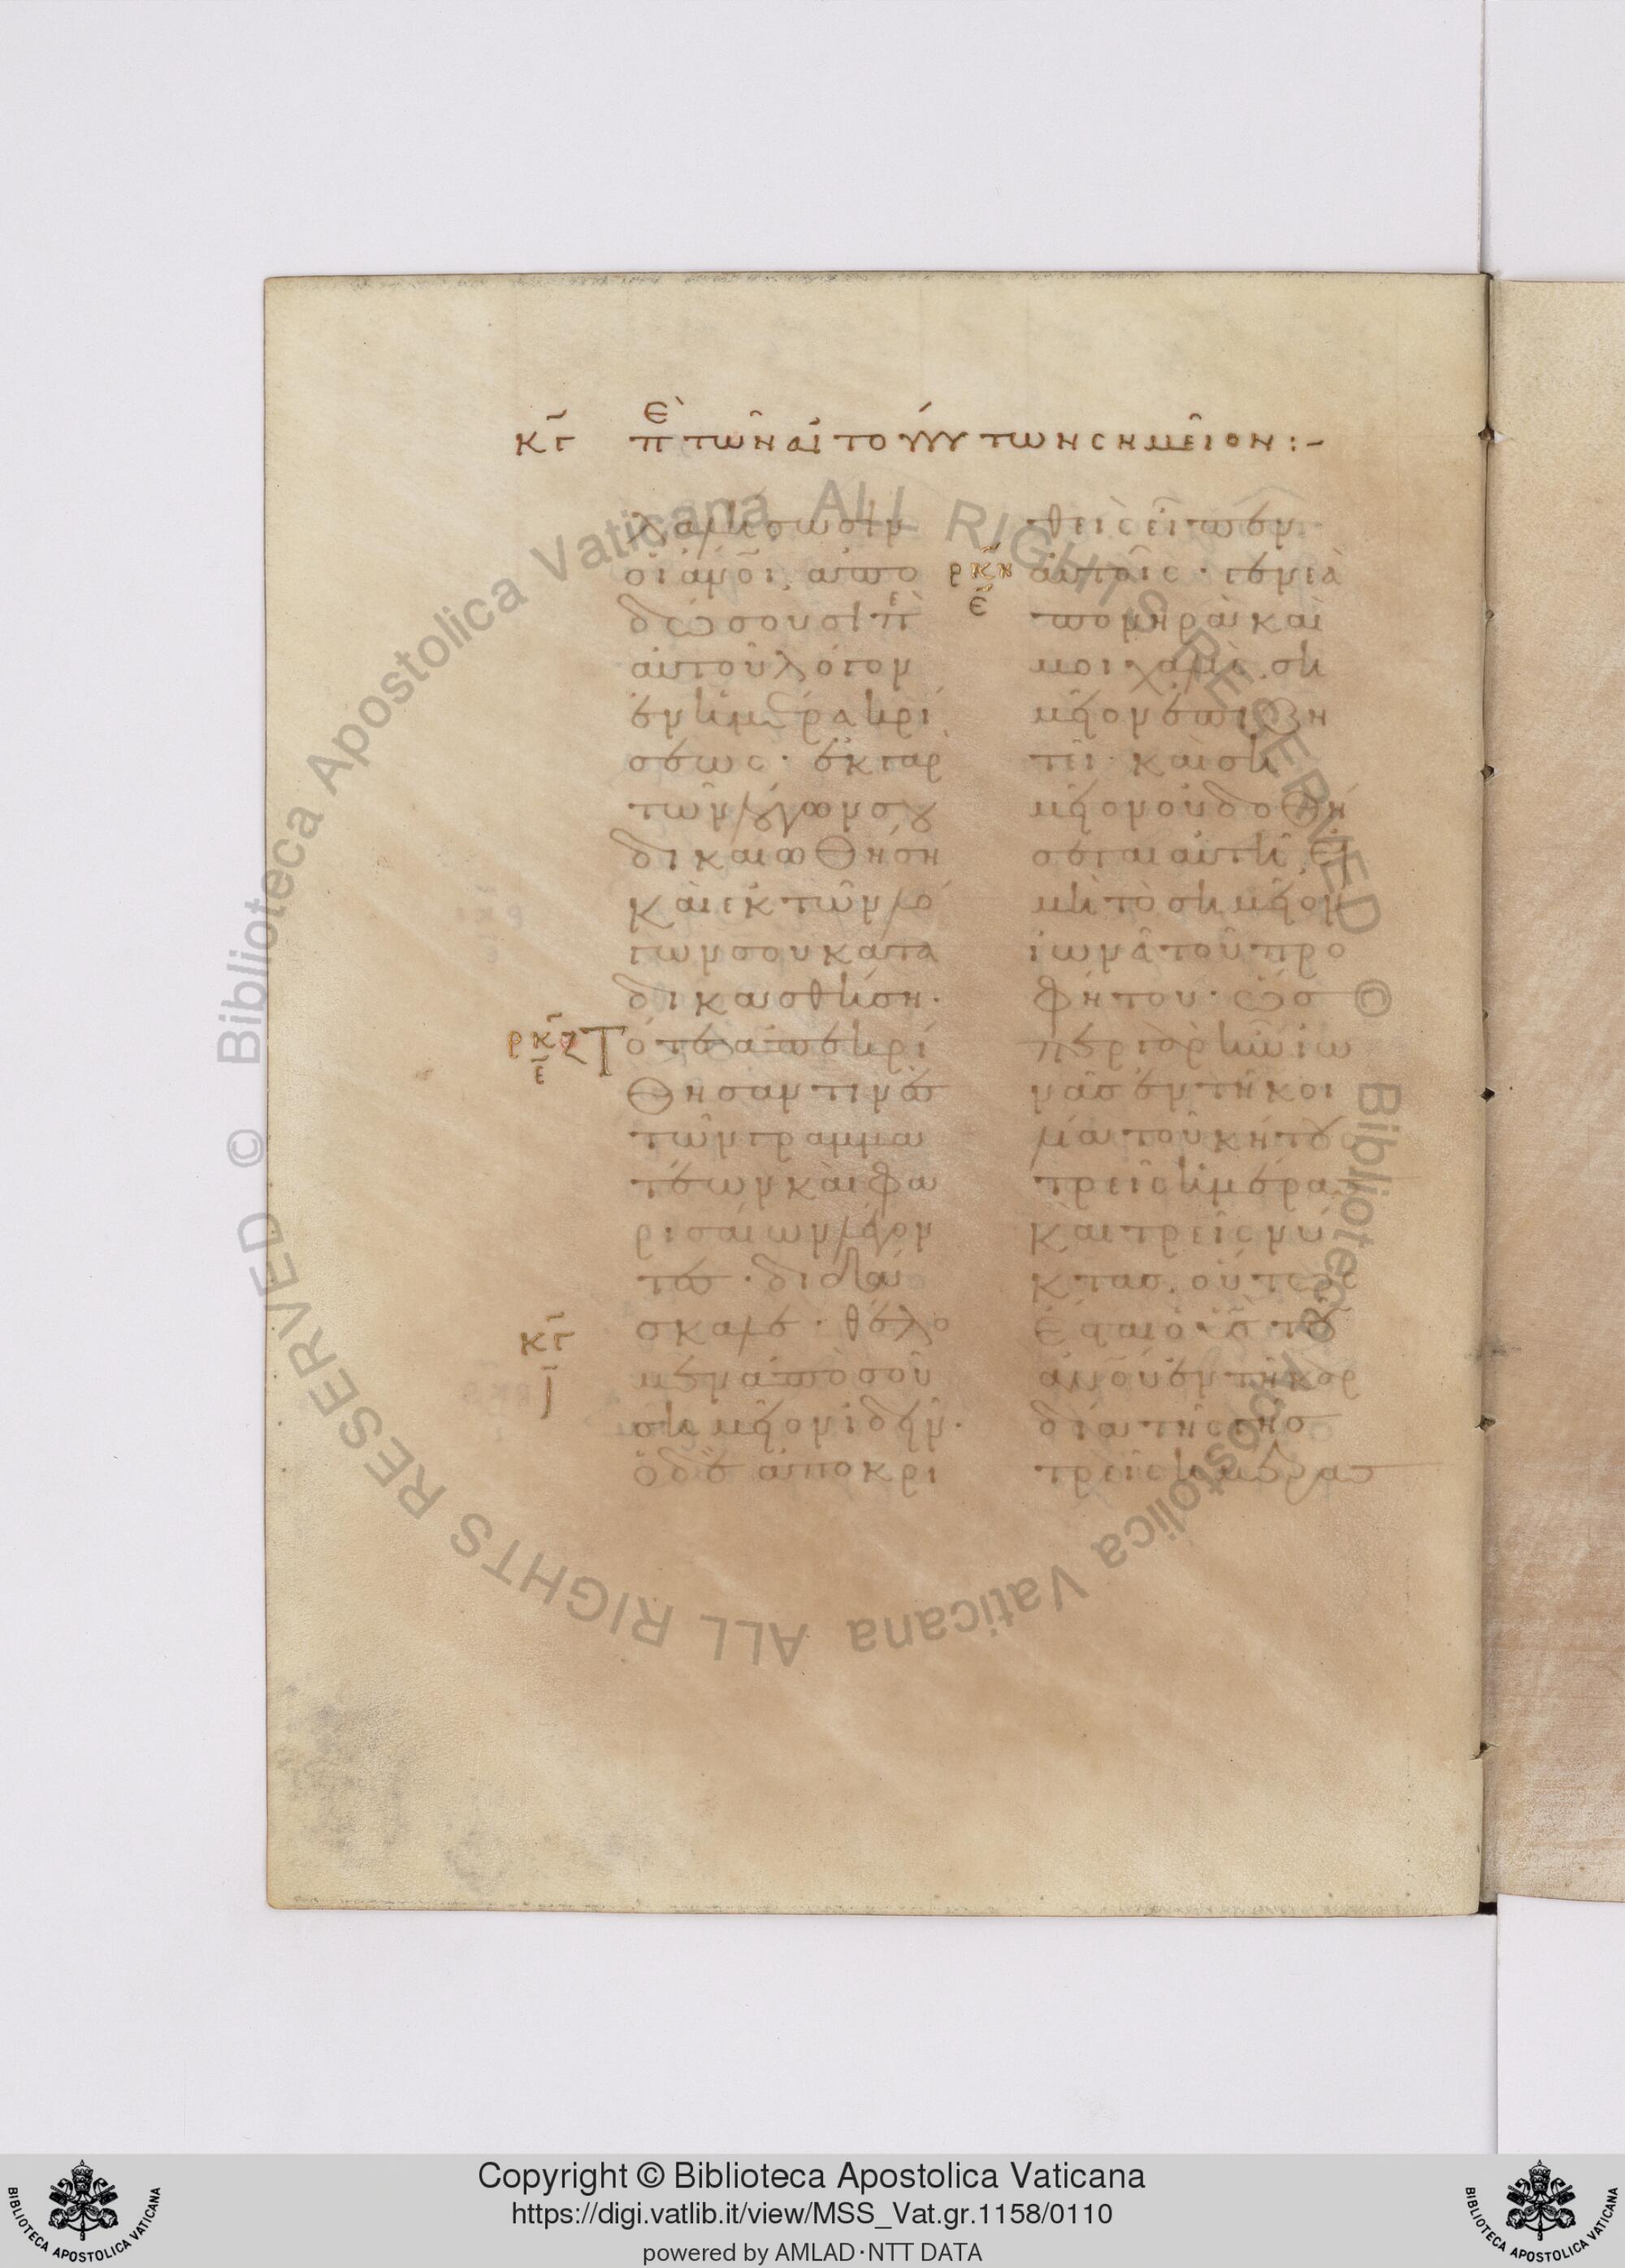 κγ̄ πὲ τῶν αἰτούντων σημεῖον :-
λαλήσωσιν
οἱ ἄνοι, ἀπο
δώσουσι πε
αὐτοῦ λόγον
ἐν ἡμέρα κρί
σεως · ἐκ γὰρ
τῶν λόγων σου
δικαιωθήση
καὶ ἐκ τῶν λό
γων σου κατα
δικασθήση ·
ρκζ Τότε ἀπεκρί
ε̄
θησαν τινὲσ
τῶν γραμμα
τέων καὶ φα
ρισαίων λέγον
τεσ · διδά
κγ̄ σκαλε · θέλο
ῑ
μεν ἀπὸ σοῦ
σημεῖον ἰδεῖν ·
ὁ δὲ ἀποκρι
θεὶς εἶπεν
ρκη αὐτοῖς · γενεὰ
ε̄
πονηρὰ καὶ
μοιχαλὶς ση
μεῖον ἐπιζη
τεῖ · καὶ ση
μεῖον οὐ δοθή
σεται αὐτῆ εἰ
μὴ τὸ σημεῖον
ἰωνᾶ τοῦ προ
φήτου · ὥσ
περ γὰρ ἦν ἰω
νᾶσ ἐν τῆ κοι
λία τοῦ κήτουσ
τρεῖς ἡμέρας
καὶ τρεῖς νύ
κτασ, οὕτωσ
ἔσται ὁ υσ του
ἀνου ἐν τῆ καρ
δία τῆς γῆσ
τρεῖς ἡμέρασ
© Biblioteca Apostolica Vaticana ALL RIGHTS RESERVED © Biblioteca Apostolica Vaticana ALL RIGHTS RESERVED
Copyright © Biblioteca Apostolica Vaticana
https://digi.vatlib.it/view/MSS_Vat.gr.1158/0110
powered by AMLAD·NTT DATA
BIBLIOTECA APOSTOLICA VATICANA
BIBLIOTECA APOSTOLICA VATICANA